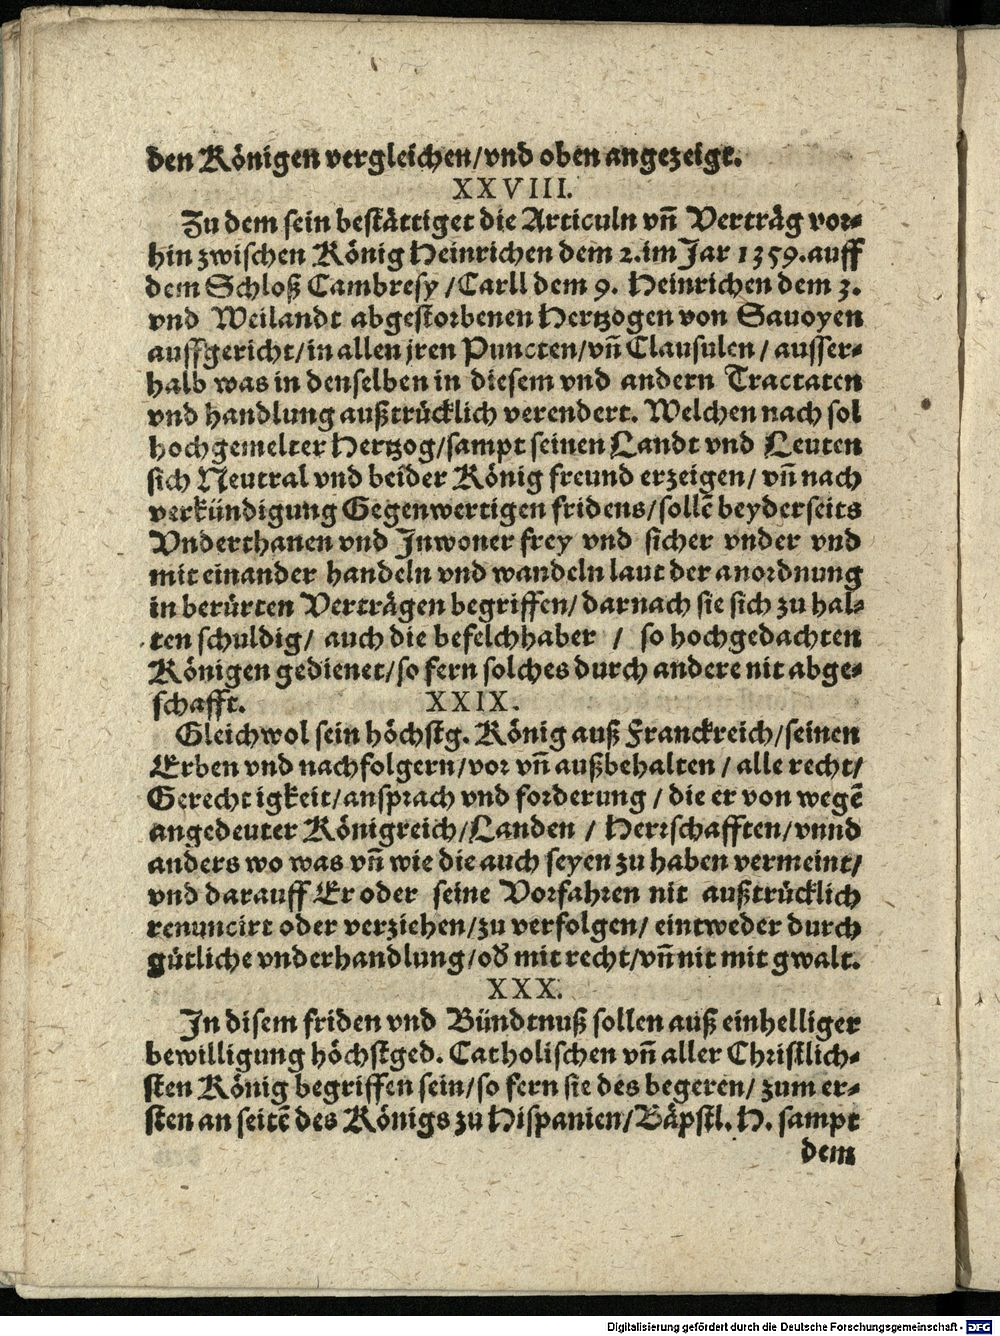 den Königen vergleichen/vnd oben angezeigt.
XXVIII.
Zu dem sein bestättiget die Articuln vñ Verträg vor-
hin zwischen König Heinrichen dem 2. im Jar 1359. auff
dem Schloß Cambresy /Carll dem 9. Heinrichen dem 3.
vnd Weilandt abgestorbenen Hertzogen von Sauoyen
auffgericht/in allen jren Puncten/vñ Clausulen / ausser-
halb was in denselben in diesem vnd andern Tractaten
vnd handlung außtrücklich verendert. Welchen nach sol
hochgemelter Hertzog/sampt seinen Landt vnd Leuten
sich Neutral vnd beider König freund erzeigen/ vñ nach
verkündigung Gegenwertigen fridens/sollē beyderseits
Vnderthanen vnd Inwoner frey vnd sicher vnder vnd
mit einander handeln vnd wandeln laut der anordnung
in berürten Verträgen begriffen/ darnach sie sich zu hal-
ten schuldig/ auch die befelchhaber / so hochgedachten
Königen gedienet/so fern solches durch andere nit abge-
schafft. XXIX.
Gleichwol sein höchstg. König auß Franckreich/seinen
Erben vnd nachfolgern/vor vñ außbehalten / alle recht/
Gerechtigkeit/ansprach vnd forderung / die er von wegē
angedeuter Königreich/Landen / Herrschafften/vnnd
anders wo was vñ wie die auch seyen zu haben vermeint/
vnd darauff Er oder seine Vorfahren nit außtrücklich
renuncirt oder verziehen/zu verfolgen/ eintweder durch
gütliche vnderhandlung/od mit recht/vñ nit mit gwalt.
XXX.
In disem friden vnd Bündtnuß sollen auß einhelliger
bewilligung höchstged. Catholischen vñ aller Christlich-
sten König begriffen sein/so fern sie des begeren/ zum er-
sten an seitē des Königs zu Hispanien/Bäpstl. H. sampt
dem
Digitalisierung gefördert durch die Deutsche Forschungsgemeinschaft - DFG